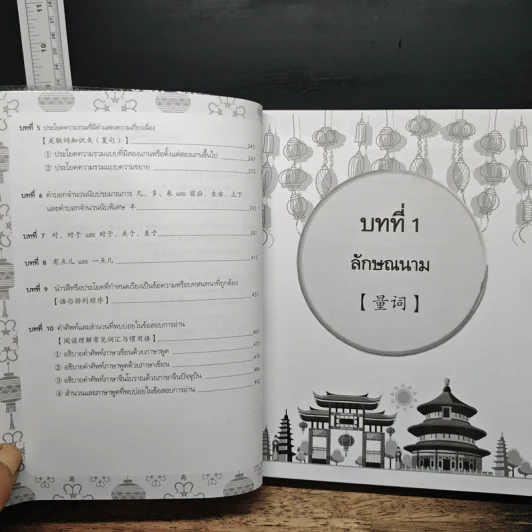 บทที่ 5 ประโยคความรวมที่มีคำแสดงความเกี่ยวเนื่อง
【关联词知识点（复句）】 245
① ประโยคความรวมแบบที่มีสองแกนหรือตั้งแต่สองแกนขึ้นไป
② ประโยคความรวมแบบความขยาย
บทที่ 6 คำบอกจำนวนนับประมาณการ 几、多、来 และ 前后、左右、上下
และคำบอกจำนวนนับพิเศษ 半
บทที่ 7 对、对于 และ 对于、关于、至于
บทที่ 8 有点儿 และ 一点儿
บทที่ 9 นำวลีหรือประโยคที่กำหนดเรียงเป็นข้อความหรือบทสนทนาที่ถูกต้อง
【语句排列顺序】
บทที่ 10 คำศัพท์และสำนวนที่พบบ่อยในข้อสอบการอ่าน
【阅读理解常见词汇与惯用语】
① อธิบายคำศัพท์ภาษาเขียนด้วยภาษาพูด
② อธิบายคำศัพท์ภาษาพูดด้วยภาษาเขียน
③ อธิบายคำศัพท์ภาษาจีนโบราณด้วยภาษาจีนปัจจุบัน
④ สำนวนและภาษาพูดที่พบบ่อยในข้อสอบการอ่าน
บทที่ 1
ลักษณนาม
【量词】